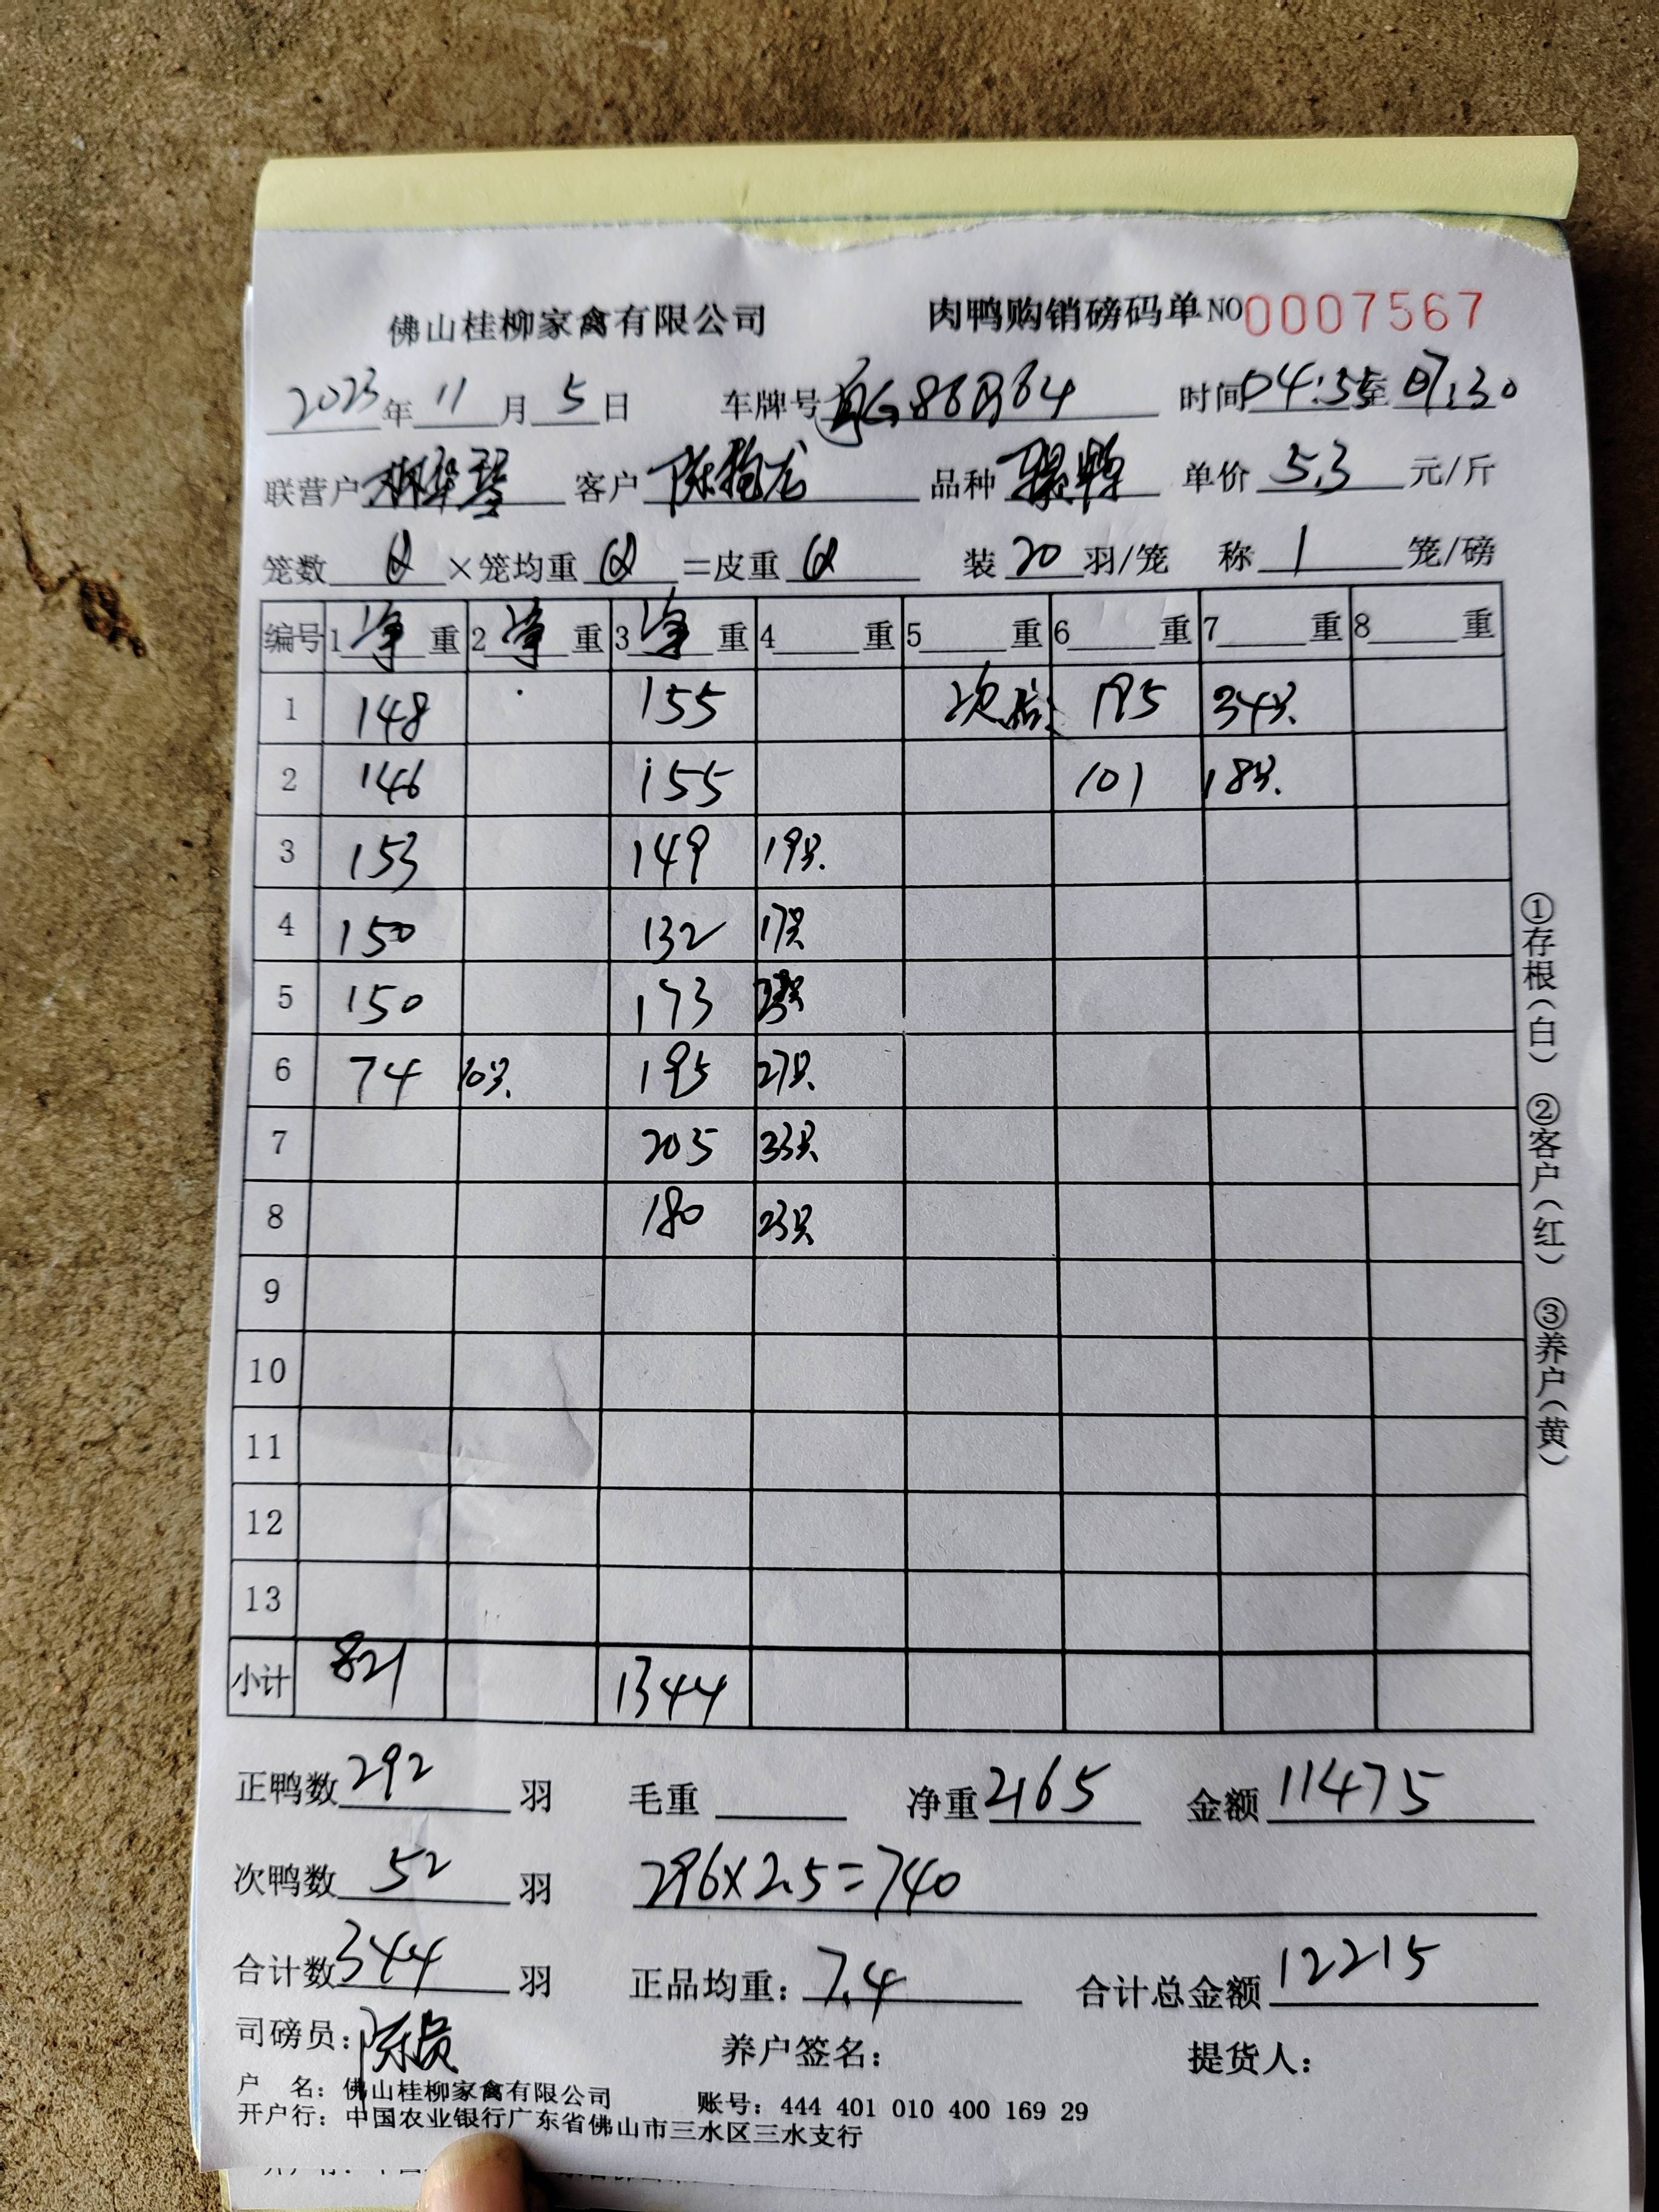 佛山桂柳家禽有限公司 肉鸭购销磅码单 NO 0007567
2023年 11 月 5 日 车牌号 时间 04:55 至 07:30
联营户 客户 陈 品种 鸭 单价 5.3 元/斤
笼数 ×笼均重 =皮重 装 20 羽/笼 称 1 笼/磅
编号 1 净 重 2 净 重 3 净 重 4 重 5 重 6 重 7 重 8 重
1 148 155 次 195 34只
2 146 155 101 18只
3 153 149 19只
4 150 132 17只
5 150 173
6 74 10只 195 27只
7 205 33只
8 180 23只
9
10
11
12
13
小计 821 1344
正鸭数 292 羽 毛重 净重 2165 金额 11475
次鸭数 52 羽 296×2.5=740
合计数 344 羽 正品均重: 7.4 合计总金额 12215
司磅员: 陈 养户签名: 提货人:
户 名: 佛山桂柳家禽有限公司 账号: 444 401 010 400 169 29
开户行: 中国农业银行广东省佛山市三水区三水支行
①存根(白) ②客户(红) ③养户(黄)